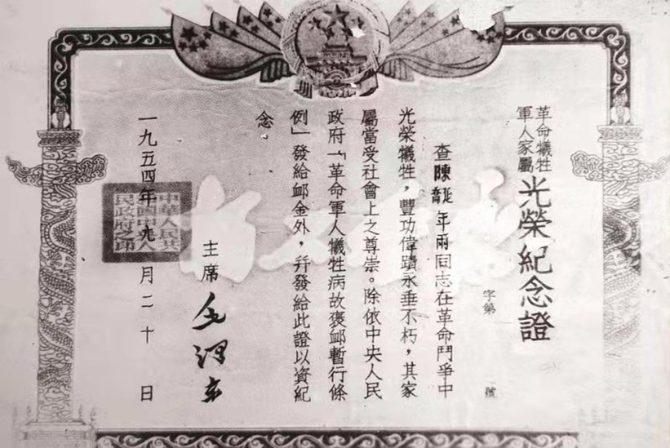 革命犧牲
軍人家屬
光榮紀念證
字第 號
查陳延喬年兩同志在革命鬥爭中
光榮犧牲,豐功偉蹟永垂不朽,其家
屬當受社會上之尊崇。除依中央人民
政府「革命軍人犧牲病故褒卹暫行條
例」發給卹金外,幷發給此證以資紀
念。
主席 毛澤東
一九五四年九八月二十日
中華人民共
和國中央人
民政府之印